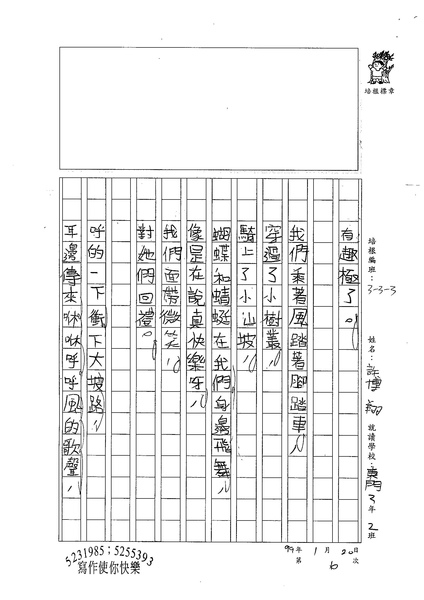 有趣極了。
我們乘著風踏著腳踏車，
穿過了小樹叢，
騎上了小山坡，
蝴蝶和蜻蜓在我們身邊飛舞，
像是在說真快樂呀，
我們面帶微笑，
對她們回禮。
呼的一下衝下大坡路，
耳邊傳來咻咻呼呼風的歌聲，
培根標章
培根編班：3-3-3
姓名：許博翔
就讀學校：東門3年2班
99年1月20日
第6次
5231985；5255393
寫作使你快樂